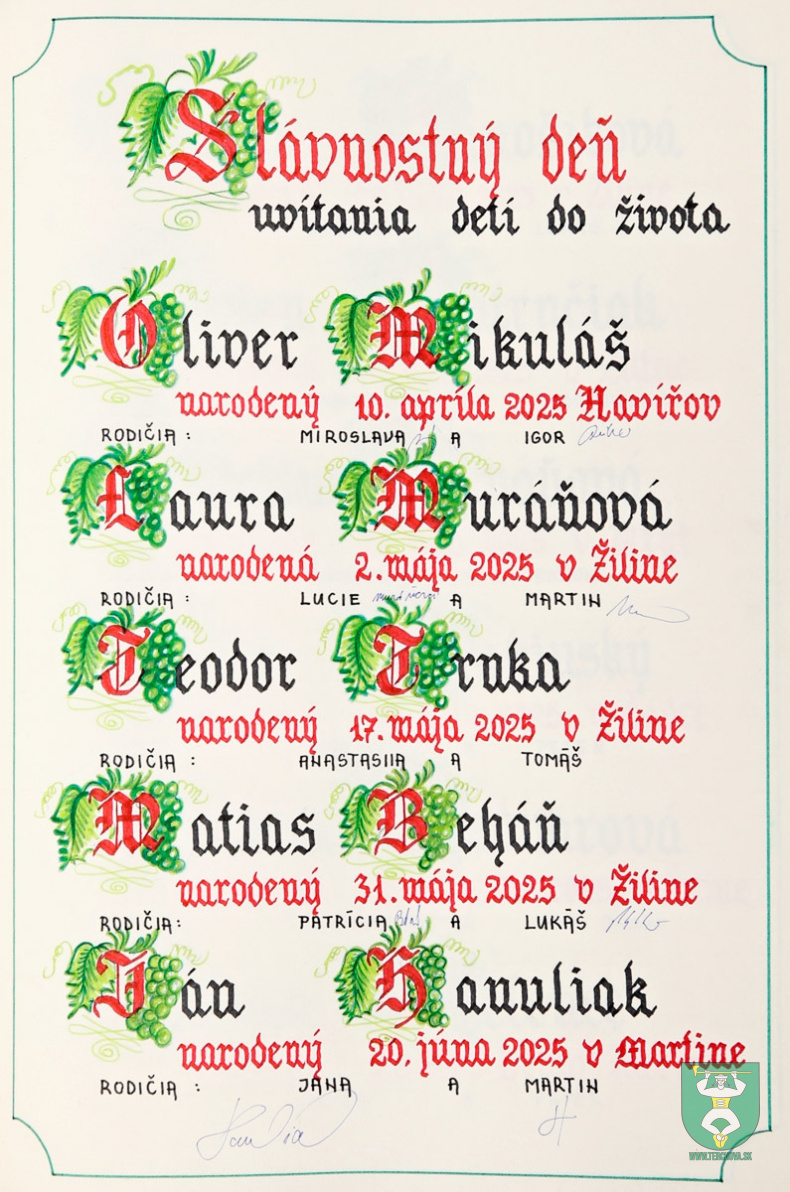 Slávnostný deň
uvítania detí do života
Oliver Mikuláš
narodený 10. apríla 2025 Havířov
RODIČIA: MIROSLAVA A IGOR
Laura Muráňová
narodená 2. mája 2025 v Žiline
RODIČIA: LUCIE A MARTIN
Teodor Trnka
narodený 17. mája 2025 v Žiline
RODIČIA: ANASTASIIA A TOMÁŠ
Matias Beháň
narodený 31. mája 2025 v Žiline
RODIČIA: PATRÍCIA A LUKÁŠ
Ján Hanuliak
narodený 20. júna 2025 v Martine
RODIČIA: JANA A MARTIN
WWW.TERCHOVA.SK